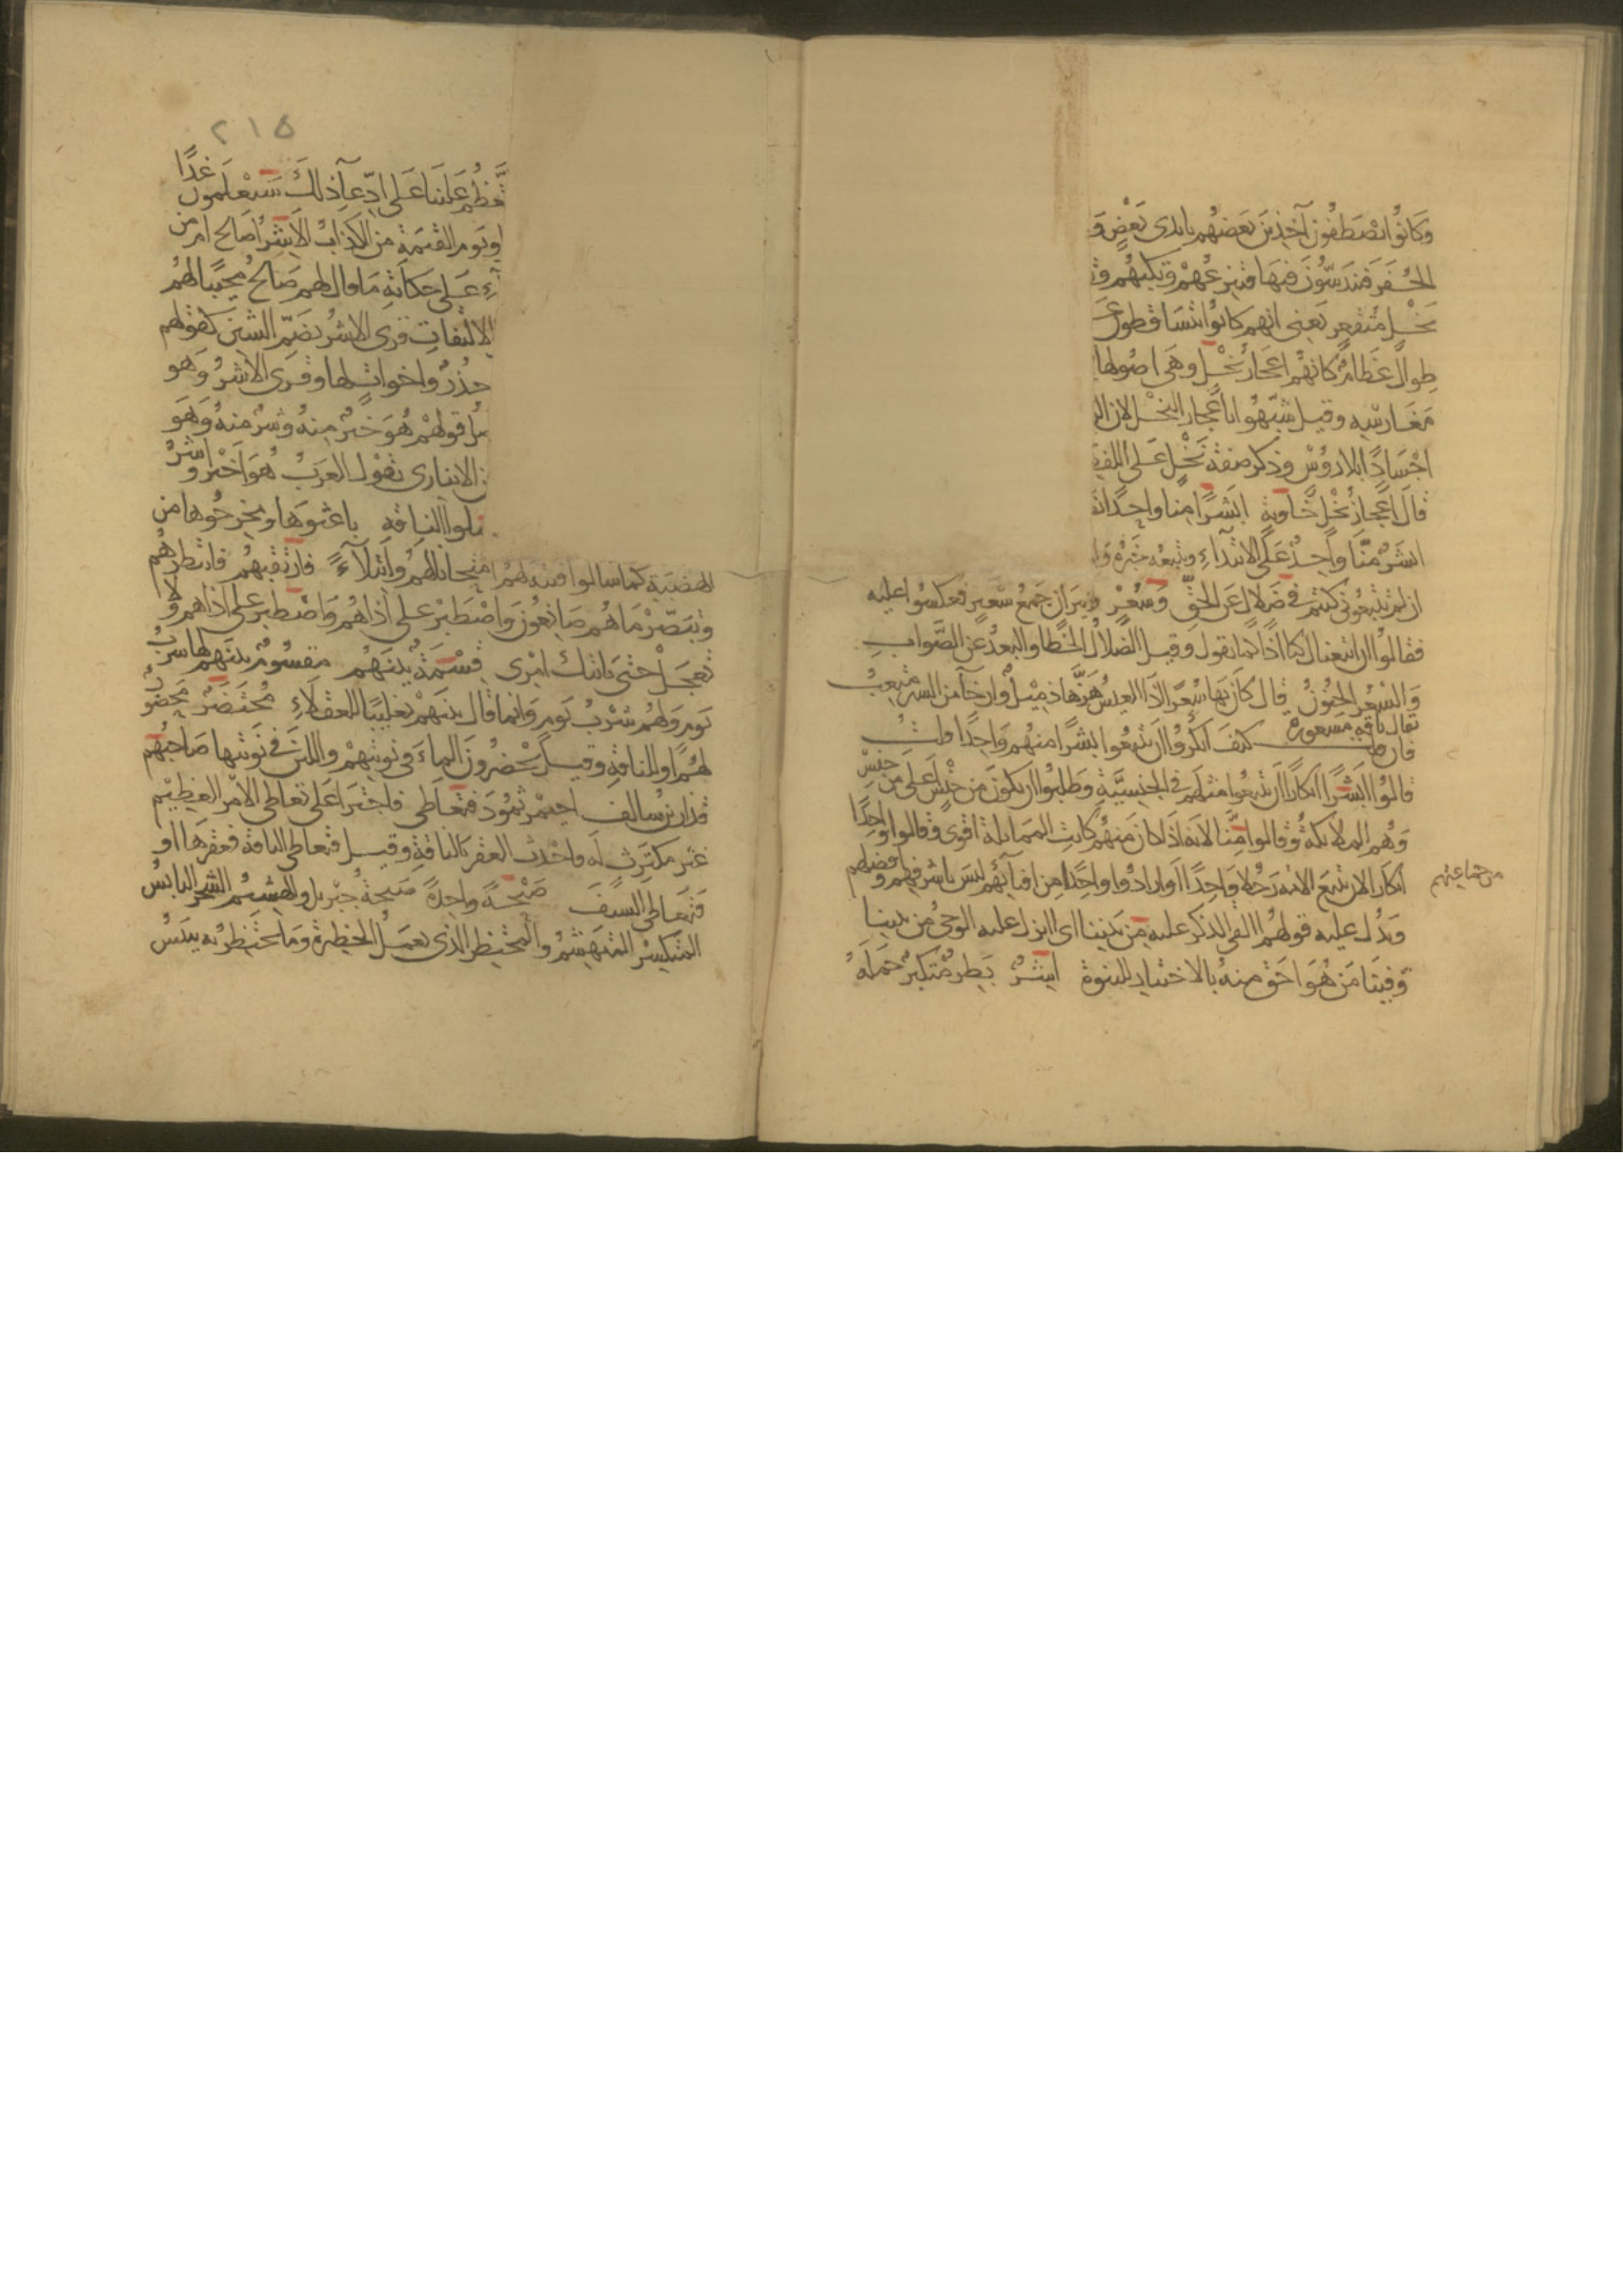 وَكَانُوا يَصْطَفُّونَ آخِذِينَ بَعْضُهُمْ بِأَيْدِي بَعْضٍ وَ
الحُفَرِ فَيَندَسُّونَ فِيهَا فتَنْزِعُهُمْ وَتَكُبُّهُمْ وَتَ
نَخْلٍ مُنْقَعِرٍ يَعْنِي انهم كَانُوا يَتَسَاقَطُونَ عَ
طِوَالٌ عِظَامٌ كَانَهُمْ اعْجَازُ نَخْلٍ وَهِيَ اصُولُهَا
مَغَارِسِهِ وقيل شُبِّهُوا باعْجازِ النَّخْلِ لان الر
اجْسَادًا بلا رُؤُسٍ وذكر صفة نَخْلٍ عَلَى اللفظ
قَالَ اعْجَازُ نَخْلٍ خَاوِيَةٍ ابَشَرًا مِنا واحِدًا نت
ابَشَرٌ مِنَّا وَاحِدٌ عَلَى الابتداءِ ونتبعه خَبَرُهُ وَ
ان لم تَتَّبِعُونِي كنتم فِي ضَلالٍ عَنِ الحَقِّ وَسُعُرٍ ونِيرَانٍ جَمعُ سَعِيرٍ فعكسُوا عليه
فقالوا ان اتبعناك كنا اذًا كما تقول وقيل الضلالُ الخَطَا والبعدُ عن الصَّوَابِ
وَالسُّعُرُ الجُنُونُ يقال ناقة مَسعورة قال كَأَنَّ بِهَا سُعُرًا اذَا العِيسُ هَزَّهَا ذمِيلٌ وارخَاءٌ من السير مُتعِبُ
فان قلت كيفَ انكرُوا ان يَتَّبِعُوا بَشَرًا منهُم وَاحِدًا قلتُ
قالُوا ابَشَرًا انكارًا ان يَتَّبِعُوا مثلهم فى الجنسيَّةِ وَطلبُوا ان يَكُونَ مِن جِنْسٍ اعلى من جِنْسِ
وَهُم الملائكة وقالوا مِنَّا لانه اذا كان منهُم كانَتِ المماثلة اقوى وقالوا واحِدًا
انكارًا لان تتبع الامة رَجُلا وَاحِدًا او ارادُوا واحِدًا مِن افنائِهم ليسَ باشرفِهِم وافضلِهم
وَيَدُل عليه قولهُم االقي الذكر عليه مِن بَيْنِنا اى اانزل عليه الوحيُ من بيننا
وَفِينَا مَن هُوَ احَق مِنهُ بالاختيارِ للنبوة اشِرٌ بَطِرٌ متكبّرٌ حَمَلَهُ
من جماعتهم
٢١٥
تَعَظُّم عَلَينَا عَلَى ادّعَاءِ ذلك سَيَعْلَمُونَ غدًا
او يَوم القيمَةِ من الكذابُ الاشِرُ اصَالح امْ مَن
ءِ عَلى حكايَةِ مَا قال لهم صَالحٌ مجيبًا لهُم
الالتفاتِ قرى الاشُرُ بضَمّ الشين كقولهم
حذُرٌ واخواتٍ لها وقرى الاشَرُّ وَهو
صل قولهم هُوَ خيرٌ مِنهُ وشرٌ منهُ وَهوَ
ن الانبارى تقول العَرَبُ هُوَ اخْيَر واشَرُّ
سلوا الناقةِ باعثوهَا ومخرجُوها من
الهضبَةِ كما سالوا فتنة لهُم امتحانا لهُم وَابتلآءً فارتقبهُم فانتظرهُم
وتبصّرْ مَا هُم صَانِعُون وَاصْطبِرْ على اذاهُمْ وَاصْطبِر على اذاهم ولا
تعجل حَتى ياتيَك امْرِى قِسْمَةٌ بَيْنَهُم مقسُومٌ بَيْنَهم لهَا شربُ
يَوم وَلهُم شِرْبُ يَوم وَانما قال بَينَهُمْ تغليبًا للعُقلاءِ مُحْتَضَرٌ محضُورٌ
لهُمْ او للناقةِ وقيل يَحْضُرُونَ الماءَ في نوبتِهِمْ واللبَنَ فِي نَوبَتِها صَاحِبَهُم
قدار بن سالف احيمر ثمُودَ فتعَاطى فاجتَرَا عَلى تعاطى الامْر العَظِيم
غَيرَ مكترِثٍ له فاحْدَث العَقرَ بالناقةِ وقيل فتعاطى الناقة فعقرهَا او
فتعَاطى السيفَ صَيْحَةً واحِدَةً صَيحَةُ جبْريل والهَشِيمُ الشجر اليابسُ
المتكسِّر المتهَشِّمُ والمُحْتَظِر الذى يعمَلُ الحظيرةَ وَمَا يَحْتَظِرُ به ييبَسُ